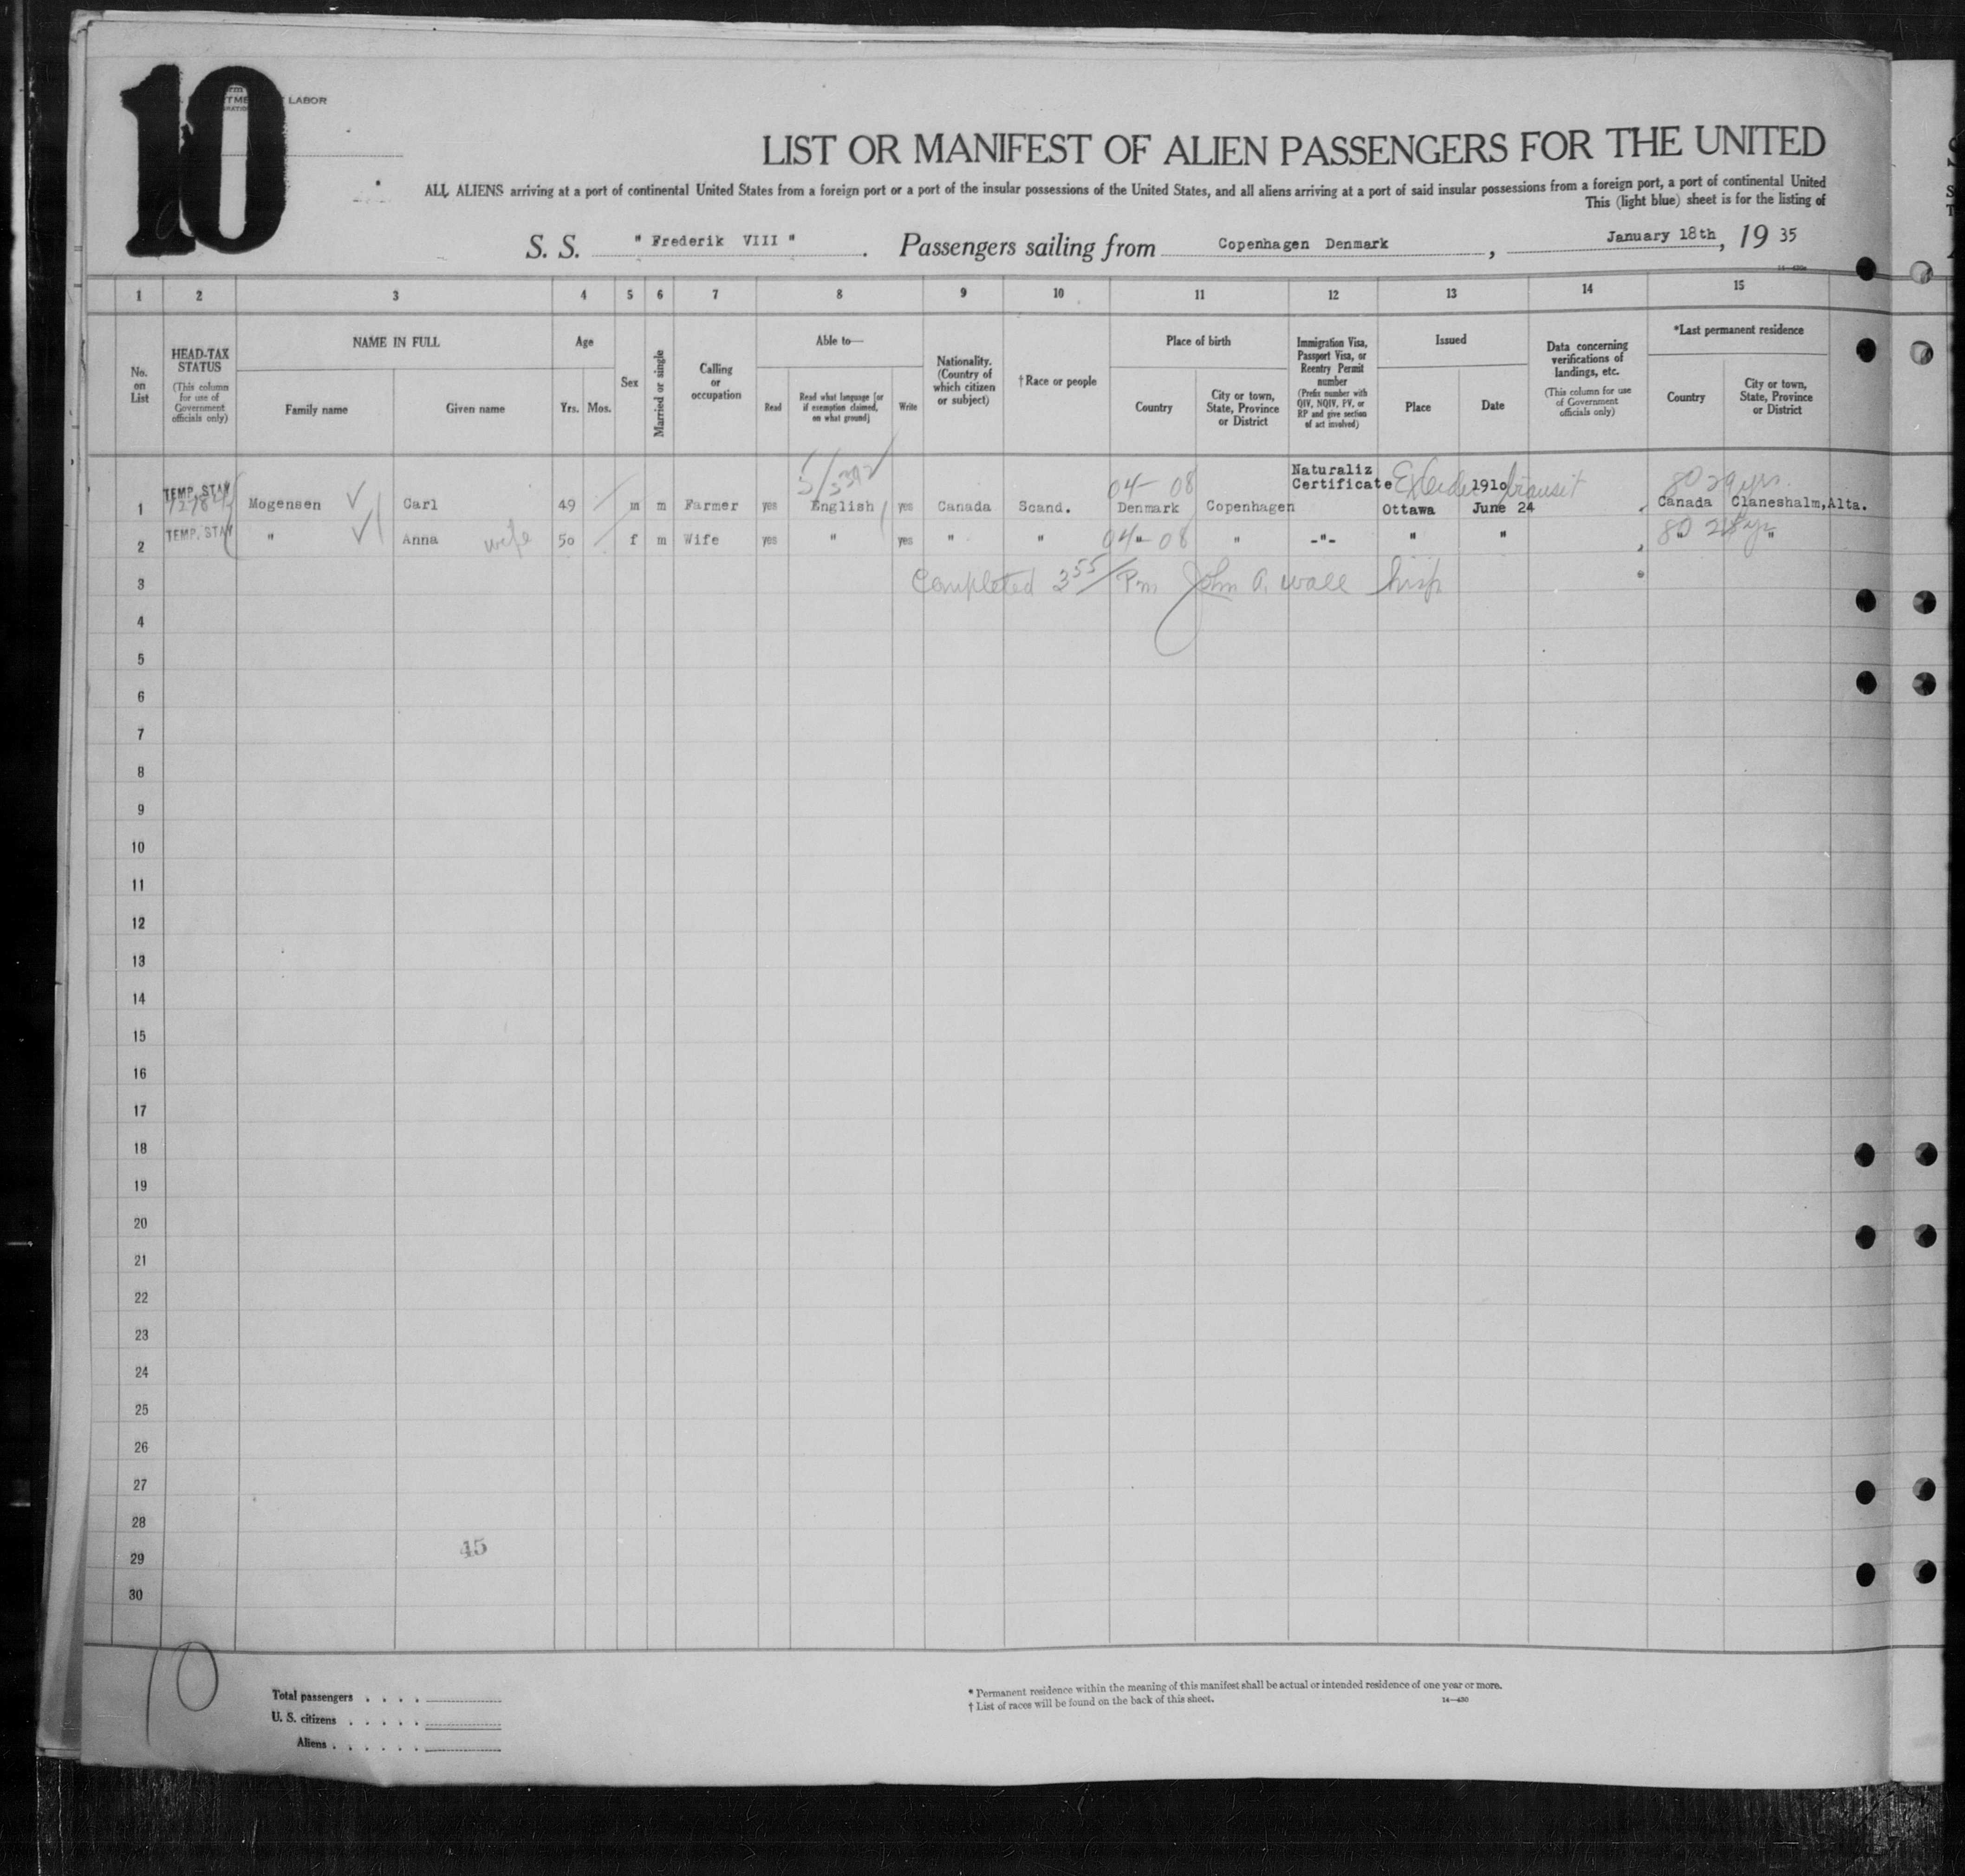 10
LABOR
LIST OR MANIFEST OF ALIEN PASSENGERS FOR THE UNITED
ALL ALIENS arriving at a port of continental United States from a foreign port or a port of the insular possessions of the United States, and all aliens arriving at a port of said insular possessions from a foreign port, a port of continental United
This (light blue) sheet is for the listing of
S. S. " Frederik VIII " . Passengers sailing from Copenhagen Denmark , January 18th, 19 35
1 2 3 4 5 6 7 8 9 10 11 12 13 14 15
No. on List
HEAD-TAX STATUS (This column for use of Government officials only)
NAME IN FULL
Family name Given name
Age
Yrs. Mos.
Sex
Married or single
Calling or occupation
Able to—
Read Read what language [or if exemption claimed, on what ground] Write
Nationality. (Country of which citizen or subject)
†Race or people
Place of birth
Country City or town, State, Province or District
Immigration Visa, Passport Visa, or Reentry Permit number (Prefix number with QIV, NQIV, PV, or RP and give section of act involved)
Issued
Place Date
Data concerning verifications of landings, etc. (This column for use of Government officials only)
*Last permanent residence
Country City or town, State, Province or District
04- 08 Naturaliz 80 29 yrs.
TEMP. STAY Certificate 1910 transit
1 Mogensen Carl 49 m m Farmer yes English yes Canada Scand. Denmark Copenhagen Ottawa June 24 Canada Claneshalm, Alta.
TEMP. STAY
2 " Anna wife 50 f m Wife yes " yes " " 04-"- 08 " -"- " " 80 " 28 yr "
3 Completed 3 55/ Pm John A. Wall Insp
4
5
6
7
8
9
10
11
12
13
14
15
16
17
18
19
20
21
22
23
24
25
26
27
28
45
29
30
10
Total passengers . . . .
U. S. citizens . . . . .
Aliens . . . . . .
* Permanent residence within the meaning of this manifest shall be actual or intended residence of one year or more.
† List of races will be found on the back of this sheet. 14—430